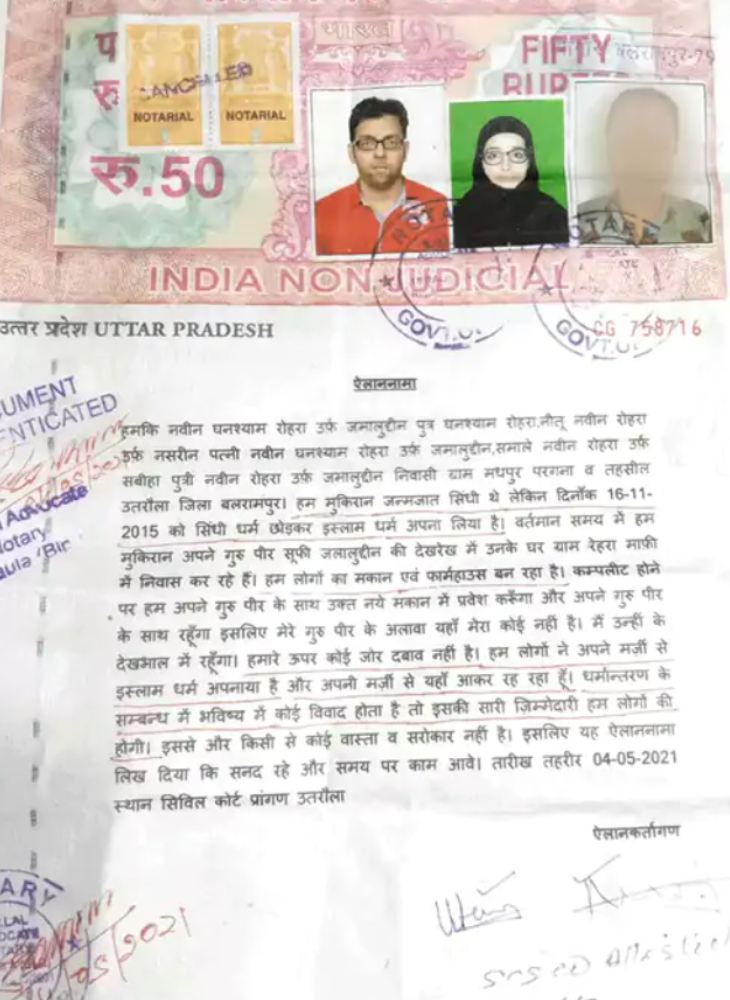 भारत
FIFTY
रु.50
CANCELLED
NOTARIAL
NOTARIAL
INDIA NON JUDICIAL
उत्तर प्रदेश UTTAR PRADESH
CG 758716
GOVT.U.
GOVT.U.
ऐलाननामा
हमकि नवीन घनश्याम रोहरा उर्फ जमालुद्दीन पुत्र घनश्याम रोहरा,नीतू नवीन रोहरा
उर्फ नसरीन पत्नी नवीन घनश्याम रोहरा उर्फ जमालुद्दीन,समाले नवीन रोहरा उर्फ
सबीहा पुत्री नवीन रोहरा उर्फ जमालुद्दीन निवासी ग्राम मधपुर परगना व तहसील
उतरौला जिला बलरामपुर। हम मुकिरान जन्मजात सिंधी थे लेकिन दिनाँक 16-11-
2015 को सिंधी धर्म छोड़कर इस्लाम धर्म अपना लिया है। वर्तमान समय में हम
मुकिरान अपने गुरू पीर सूफी जलालुद्दीन की देखरेख में उनके घर ग्राम रेहरा माफी
में निवास कर रहे हैं। हम लोगों का मकान एवं फार्महाउस बन रहा है। कम्पलीट होने
पर हम अपने गुरू पीर के साथ उक्त नये मकान में प्रवेश करूँगा और अपने गुरू पीर
के साथ रहूँगा इसलिए मेरे गुरू पीर के अलावा यहाँ मेरा कोई नहीं है। मैं उन्हीं के
देखभाल में रहूँगा। हमारे ऊपर कोई जोर दबाव नहीं है। हम लोगों ने अपने मर्ज़ी से
इस्लाम धर्म अपनाया है और अपनी मर्ज़ी से यहाँ आकर रह रहा हूँ। धर्मान्तरण के
सम्बन्ध में भविष्य में कोई विवाद होता है तो इसकी सारी ज़िम्मेदारी हम लोगों की
होगी। इससे और किसी से कोई वास्ता व सरोकार नहीं है। इसलिए यह ऐलाननामा
लिख दिया कि सनद रहे और समय पर काम आवे। तारीख तहरीर 04-05-2021
स्थान सिविल कोर्ट प्रांगण उतरौला
ऐलानकर्तागण
UMENT
ENTICATED
Advocate
Notary
aula 'Bir
ARY
05/2021